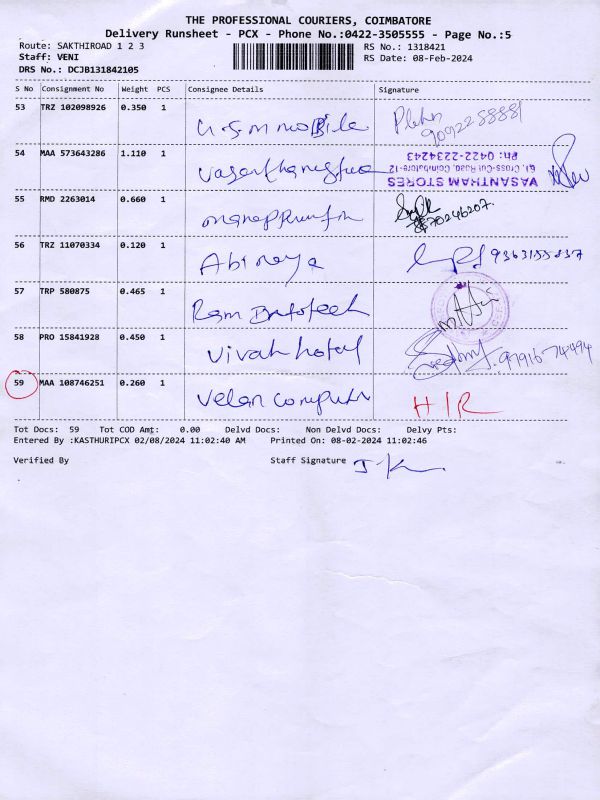 THE PROFESSIONAL COURIERS, COIMBATORE
Delivery Runsheet - PCX - Phone No.:0422-3505555 - Page No.:5
Route: SAKTHIROAD 1 2 3
RS No.: 1318421
Staff: VENI
RS Date: 08-Feb-2024
DRS No.: DCJB131842105
S No Consignment No Weight PCS Consignee Details Signature
53 TRZ 102098926 0.350 1 U.S.M mobile
54 MAA 573643286 1.110 1
VASANTHAM STORES
61, Cross-Cut Road, Coimbatore-12
Ph: 0422-2234243
55 RMD 2263014 0.660 1
56 TRZ 11070334 0.120 1 Abinaya 9363155837
57 TRP 580875 0.465 1 Ram
58 PRO 15841928 0.450 1 Vivah hotal 9791674494
59 MAA 108746251 0.260 1 Velan computr H/R
Tot Docs: 59 Tot COD Amt: 0.00 Delvd Docs: Non Delvd Docs: Delvy Pts:
Entered By :KASTHURIPCX 02/08/2024 11:02:40 AM Printed On: 08-02-2024 11:02:46
Verified By Staff Signature